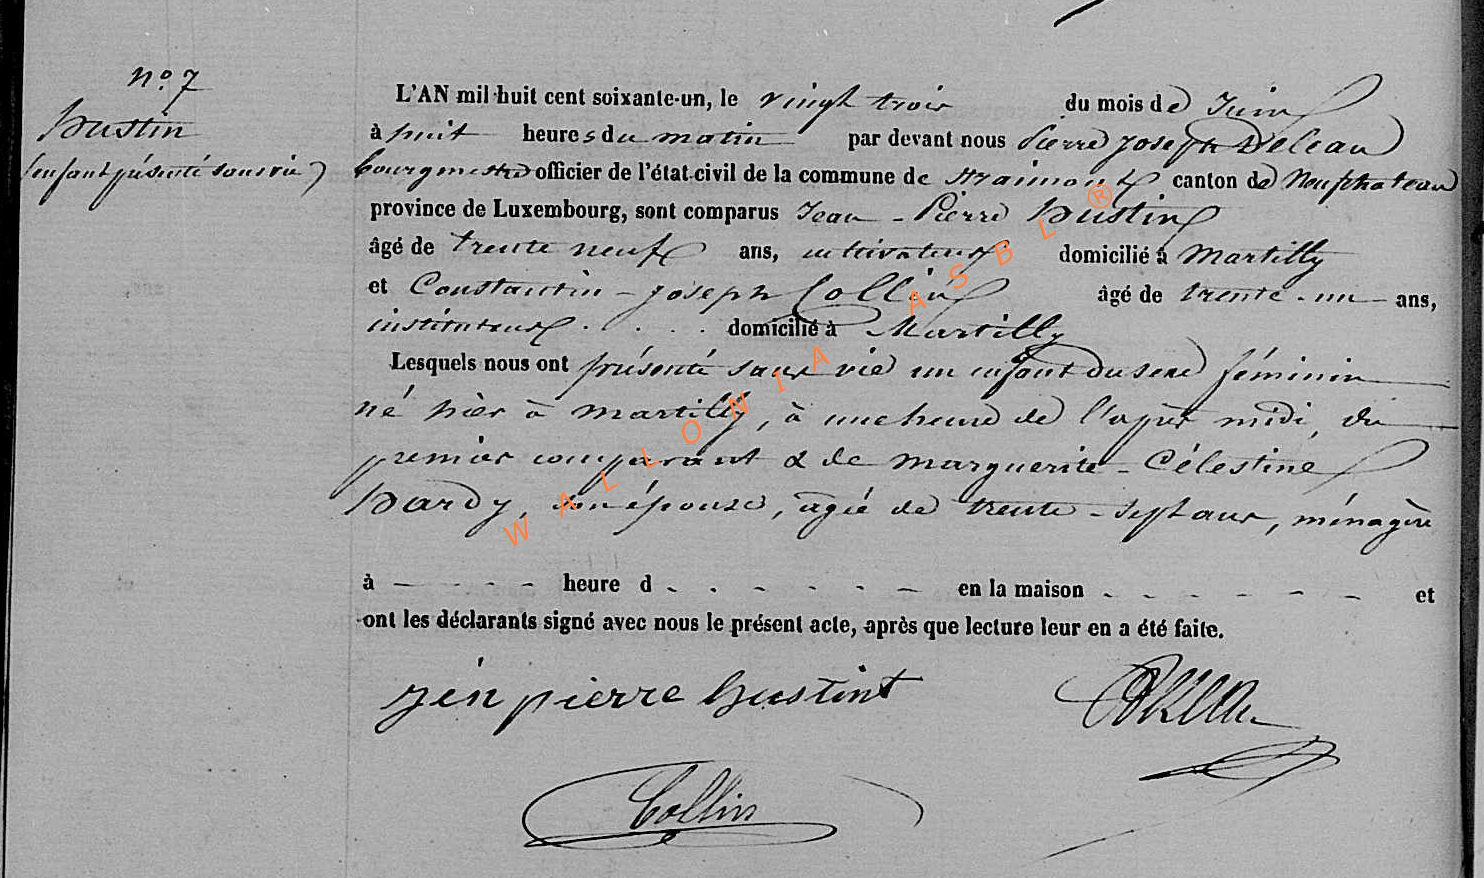 n° 7
hustin
(enfant présenté sans vie)
L'AN mil huit cent soixante-un, le vingt trois du mois de Juin
à huit heures du matin par devant nous Pierre Joseph Deleau
bourgmestre officier de l'état civil de la commune de Straimont canton de Neufchateau
province de Luxembourg, sont comparus Jean-Pierre hustin
âgé de trente neuf ans, cultivateur domicilié à Martilly
et Constantin-Joseph Collin âgé de trente-un ans,
instituteur domicilié à Martilly
Lesquels nous ont présenté sans vie un enfant du sexe féminin
né hier à martilly, à une heure de l'après midi, du
premier comparant & de marguerite-Célestine
hardy, son épouse, agée de trente-sept ans, ménagère
à - - - - heure d - - - - - - en la maison - - - - - - et
ont les déclarants signé avec nous le présent acte, après que lecture leur en a été faite.
jén pierre hustint
Deleau
Collin
WALLONIA ASBL ®